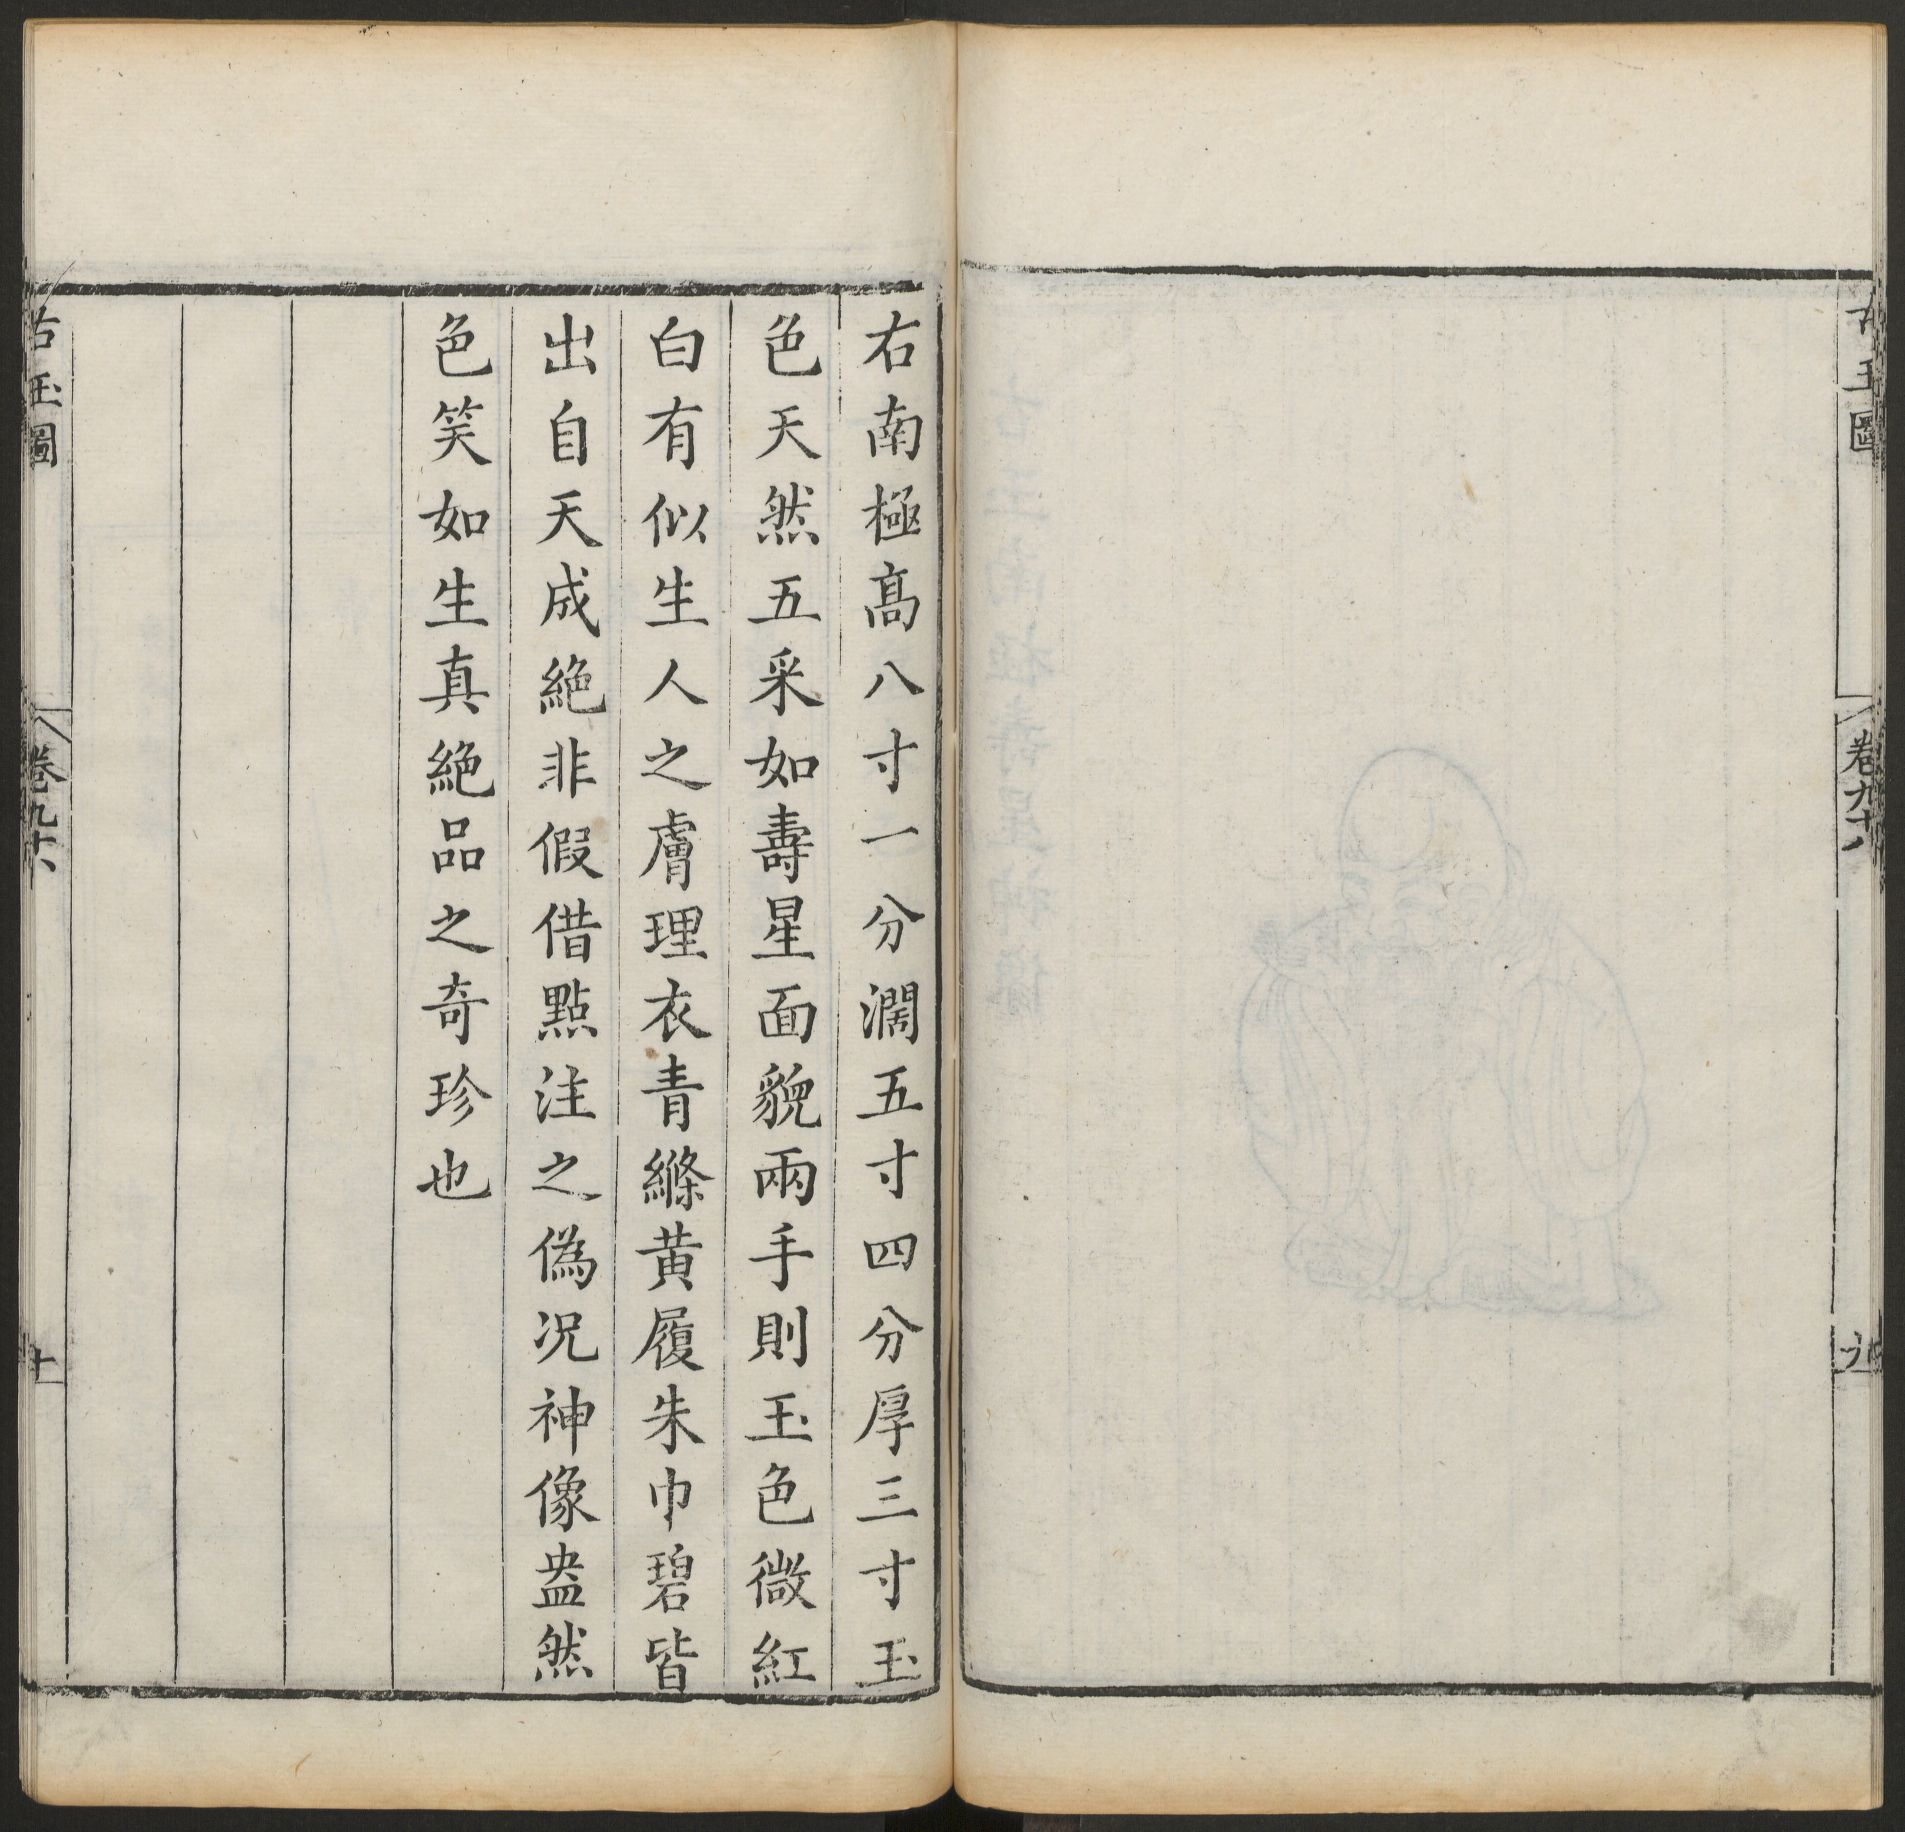 古玉圖
卷九十八
九
右南極髙八寸一分濶五寸四分厚三寸玉
色天然五采如壽星面貌兩手則玉色微紅
白有似生人之膚理衣青縧黄履朱巾碧皆
出自天成絶非假借點注之偽况神像盎然
色笑如生真絶品之奇珍也
古玉圖
卷九十八
十